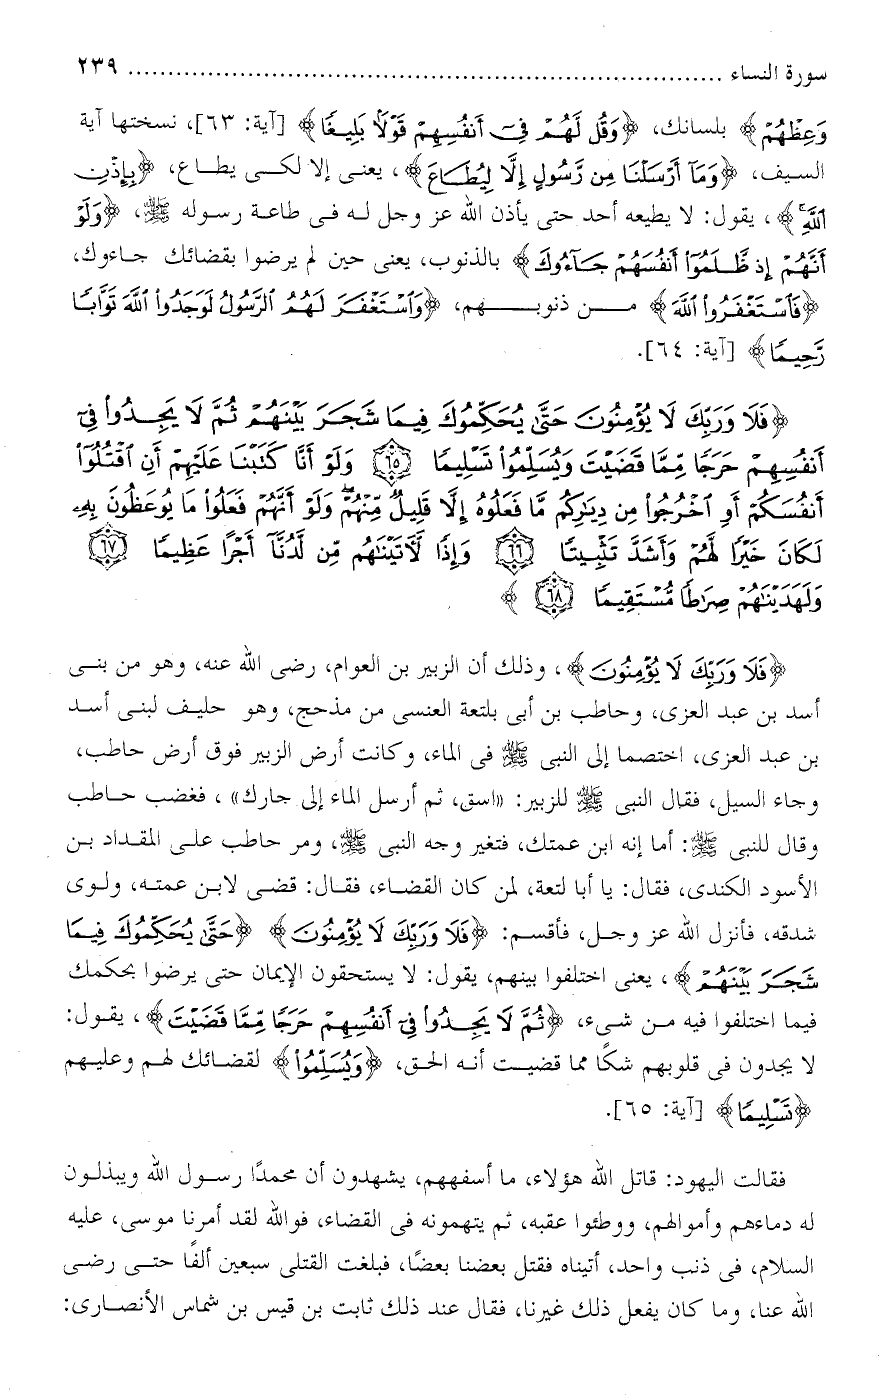 سورة النساء ........................................................................ ٢٣٩
وَعِظْهُمْ﴾ بلسانك، ﴿وَقُل لَهُمْ فِىٓ أَنفُسِهِمْ قَوْلَا بَلِيغًا﴾ [آية: ٦٣]، نسختها آية
السيف، ﴿وَمَآ أَرْسَلْنَا مِن رَّسُولٍ إِلَّا لِيُطَاعَ﴾، يعنى إلا لكى يطاع، ﴿بِإِذْنِ
ٱللَّهِ﴾، يقول: لا يطيعه أحد حتى يأذن الله عز وجل له فى طاعة رسوله ﷺ، ﴿وَلَوْ
أَنَّهُمْ إِذ ظَّلَمُوٓاْ أَنفُسَهُمْ جَآءُوكَ﴾ بالذنوب، يعنى حين لم يرضوا بقضائك جاءوك،
﴿فَٱسْتَغْفَرُواْ ٱللَّهَ﴾ من ذنوبهم، ﴿وَٱسْتَغْفَرَ لَهُمُ ٱلرَّسُولُ لَوَجَدُواْ ٱللَّهَ تَوَّابًا
رَّحِيمًا﴾ [آية: ٦٤].
﴿فَلَا وَرَبِّكَ لَا يُؤْمِنُونَ حَتَّىٰ يُحَكِّمُوكَ فِيمَا شَجَرَ بَيْنَهُمْ ثُمَّ لَا يَجِدُواْ فِىٓ
أَنفُسِهِمْ حَرَجًا مِّمَّا قَضَيْتَ وَيُسَلِّمُواْ تَسْلِيمًا ٦٥ وَلَوْ أَنَّا كَتَبْنَا عَلَيْهِمْ أَنِ ٱقْتُلُوٓاْ
أَنفُسَكُمْ أَوِ ٱخْرُجُواْ مِن دِيَٰرِكُم مَّا فَعَلُوهُ إِلَّا قَلِيلٌ مِّنْهُمْ ۖ وَلَوْ أَنَّهُمْ فَعَلُواْ مَا يُوعَظُونَ بِهِۦ
لَكَانَ خَيْرًا لَّهُمْ وَأَشَدَّ تَثْبِيتًا ٦٦ وَإِذًا لَّأٓتَيْنَٰهُم مِّن لَّدُنَّآ أَجْرًا عَظِيمًا ٦٧
وَلَهَدَيْنَٰهُمْ صِرَٰطًا مُّسْتَقِيمًا ٦٨ ﴾
﴿فَلَا وَرَبِّكَ لَا يُؤْمِنُونَ﴾، وذلك أن الزبير بن العوام، رضى الله عنه، وهو من بنى
أسد بن عبد العزى، وحاطب بن أبى بلتعة العنسى من مذحج، وهو حليف لبنى أسد
بن عبد العزى، اختصما إلى النبى ﷺ فى الماء، وكانت أرض الزبير فوق أرض حاطب،
وجاء السيل، فقال النبى ﷺ للزبير: «اسق، ثم أرسل الماء إلى جارك»، فغضب حاطب
وقال للنبى ﷺ: أما إنه ابن عمتك، فتغير وجه النبى ﷺ، ومر حاطب على المقداد بن
الأسود الكندى، فقال: يا أبا لتعة، لمن كان القضاء، فقال: قضى لابن عمته، ولوى
شدقه، فأنزل الله عز وجل، فأقسم: ﴿فَلَا وَرَبِّكَ لَا يُؤْمِنُونَ﴾ ﴿حَتَّىٰ يُحَكِّمُوكَ فِيمَا
شَجَرَ بَيْنَهُمْ﴾، يعنى اختلفوا بينهم، يقول: لا يستحقون الإيمان حتى يرضوا بحكمك
فيما اختلفوا فيه من شىء، ﴿ثُمَّ لَا يَجِدُواْ فِىٓ أَنفُسِهِمْ حَرَجًا مِّمَّا قَضَيْتَ﴾، يقول:
لا يجدون فى قلوبهم شكًا مما قضيت أنه الحق، ﴿وَيُسَلِّمُواْ﴾ لقضائك لهم وعليهم
﴿تَسْلِيمًا﴾ [آية: ٦٥].
فقالت اليهود: قاتل الله هؤلاء، ما أسفههم، يشهدون أن محمدًا رسول الله ويبذلون
له دماءهم وأموالهم، ووطئوا عقبه، ثم يتهمونه فى القضاء، فوالله لقد أمرنا موسى، عليه
السلام، فى ذنب واحد، أتيناه فقتل بعضنا بعضًا، فبلغت القتلى سبعين ألفًا حتى رضى
الله عنا، وما كان يفعل ذلك غيرنا، فقال عند ذلك ثابت بن قيس بن شماس الأنصارى: